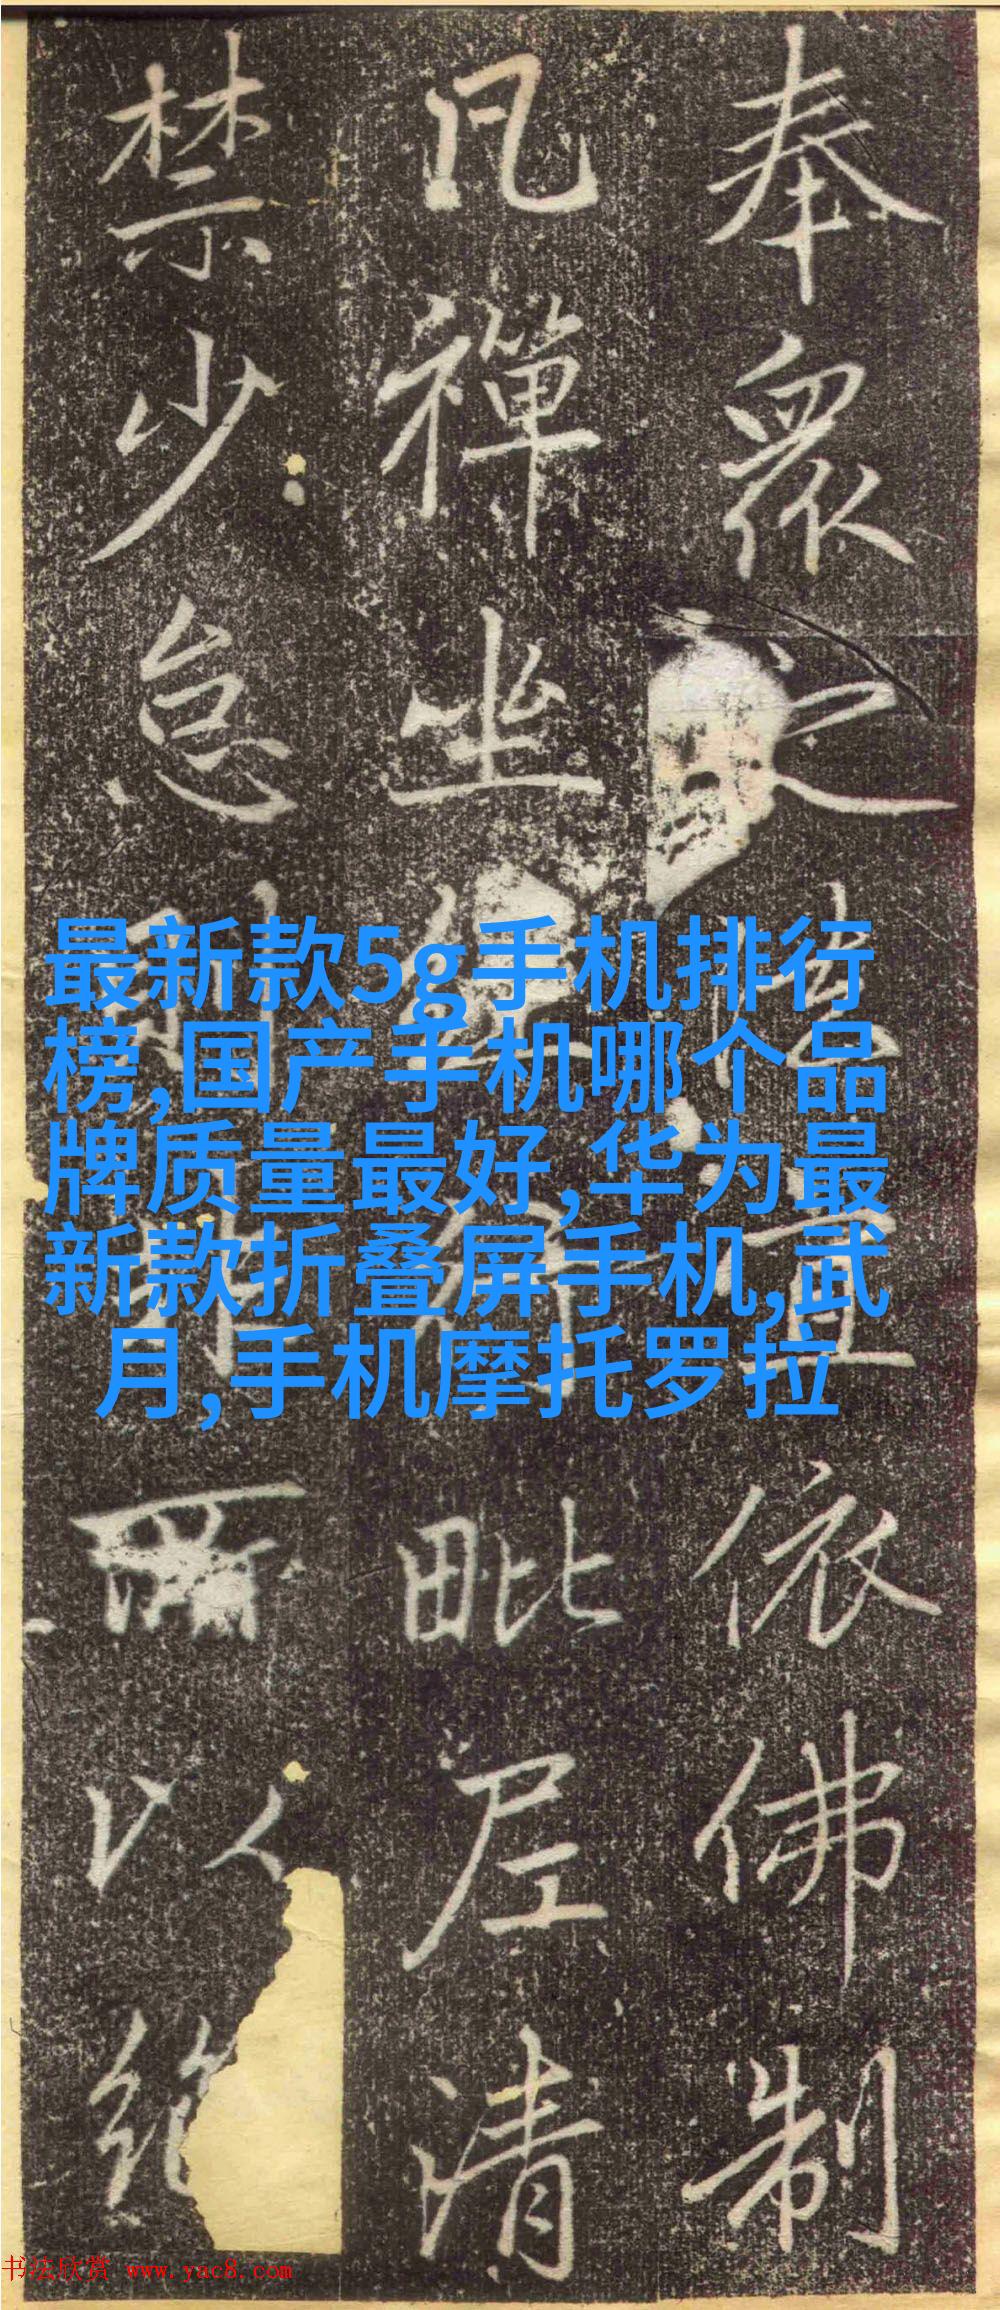 奉眾依佛制
凡禪坐行毗尼清
禁少怠以絕
最新款5g手机排行
榜,国产手机哪个品
牌质量最好,华为最
新款折叠屏手机,武
月,手机摩托罗拉
书法欣赏 www.yac8.com